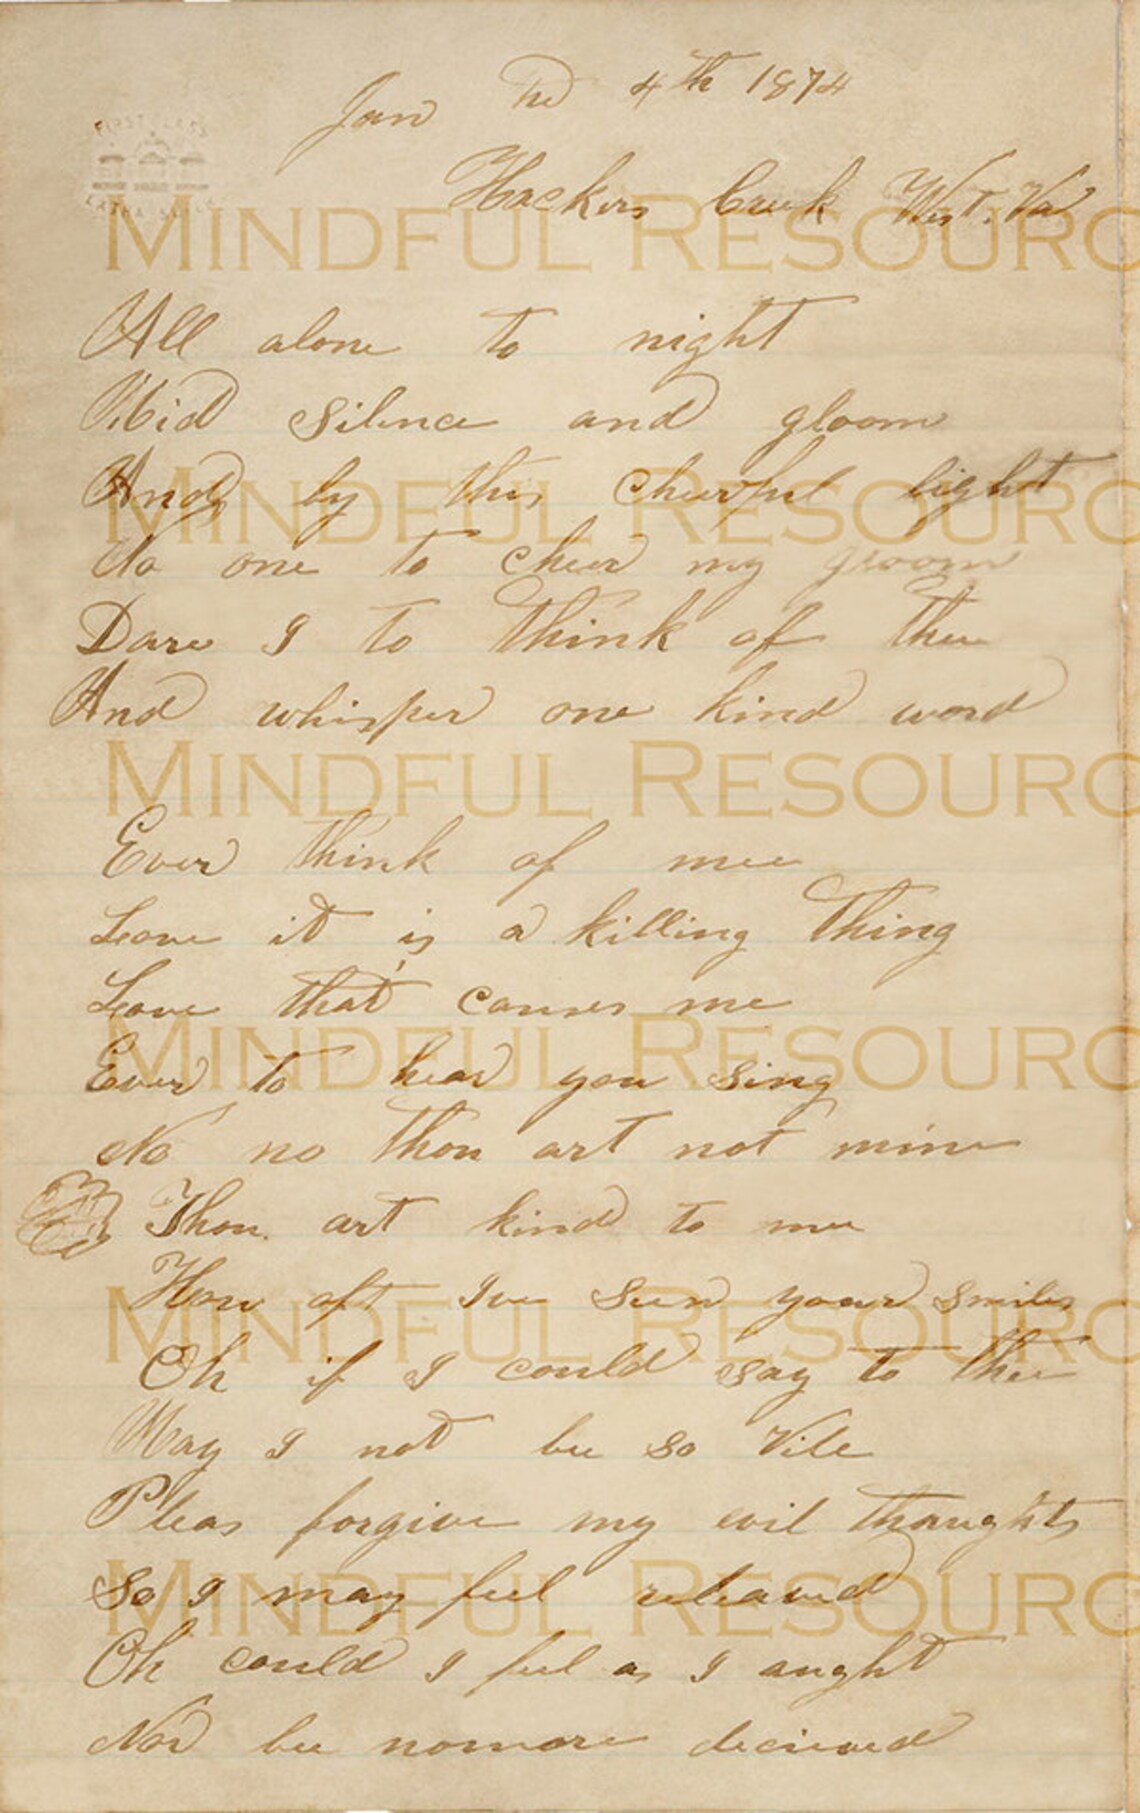 Jan the 4th 1874
Hackers Creek West. Va
MINDFUL RESOURC
All alone to night
Mid silence and gloom
And by this cheerful light
MINDFUL RESOURC
No one to cheer my gloom
Dare I to think of thee
And whisper one kind word
MINDFUL RESOURC
Ever think of mee
Love it is a killing thing
Love that causes me
MINDFUL RESOURC
Ever to hear you sing
No no thou art not mine
Thou. art kind to me
How oft Ive seen your smiles
MINDFUL RESOURC
Oh if I could say to thee
May I not be so vile
Pleas forgive my evil thaughts
So I may feel releaved
MINDFUL RESOURC
Oh could I feel as I aught
Nor bee nomore decieved